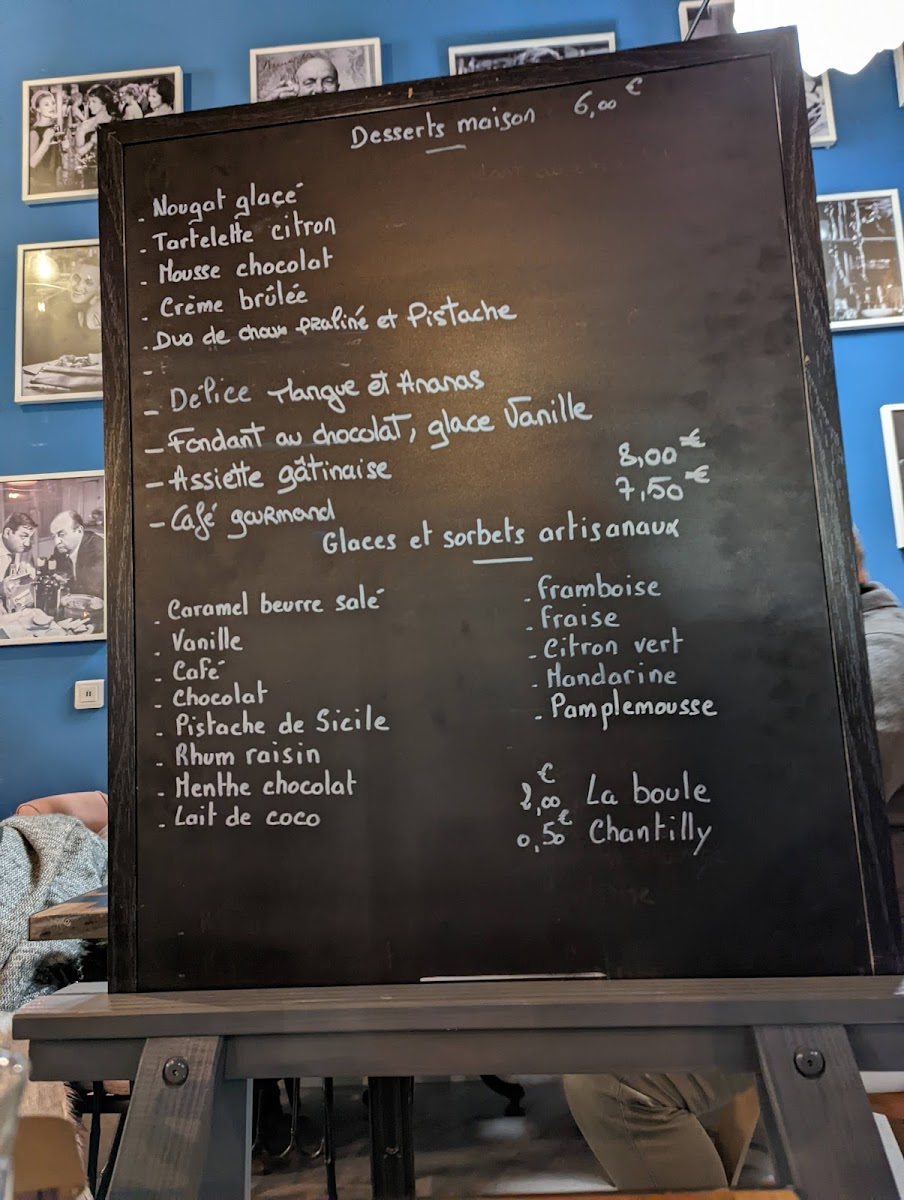 Desserts maison 6,00 €
. Nougat glacé
. Tartelette citron
. Mousse chocolat
. Crème brûlée
. Duo de choux praliné et Pistache
-
- Délice Mangue et Ananas
- Fondant au chocolat, glace Vanille
- Assiette gâtinaise 8,00 €
- Café gourmand 7,50 €
Glaces et sorbets artisanaux
. Caramel beurre salé
. Vanille
. Café
. Chocolat
. Pistache de Sicile
. Rhum raisin
. Menthe chocolat
. Lait de coco
. Framboise
. Fraise
. Citron vert
. Mandarine
. Pamplemousse
2,00 € La boule
0,50 € Chantilly